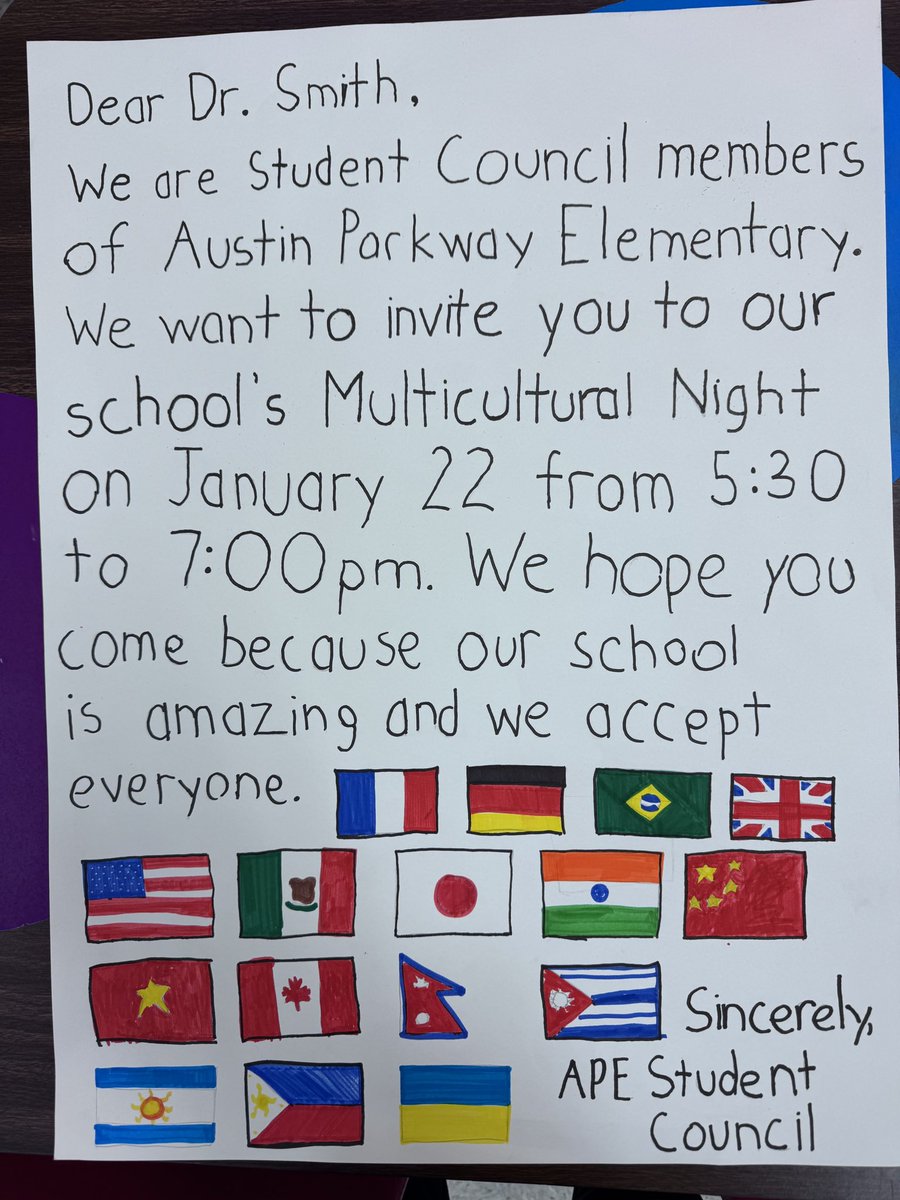 Dear Dr. Smith,
We are Student Council members
of Austin Parkway Elementary.
We want to invite you to our
school's Multicultural Night
on January 22 from 5:30
to 7:00pm. We hope you
come because our school
is amazing and we accept
everyone.
Sincerely,
APE Student
Council